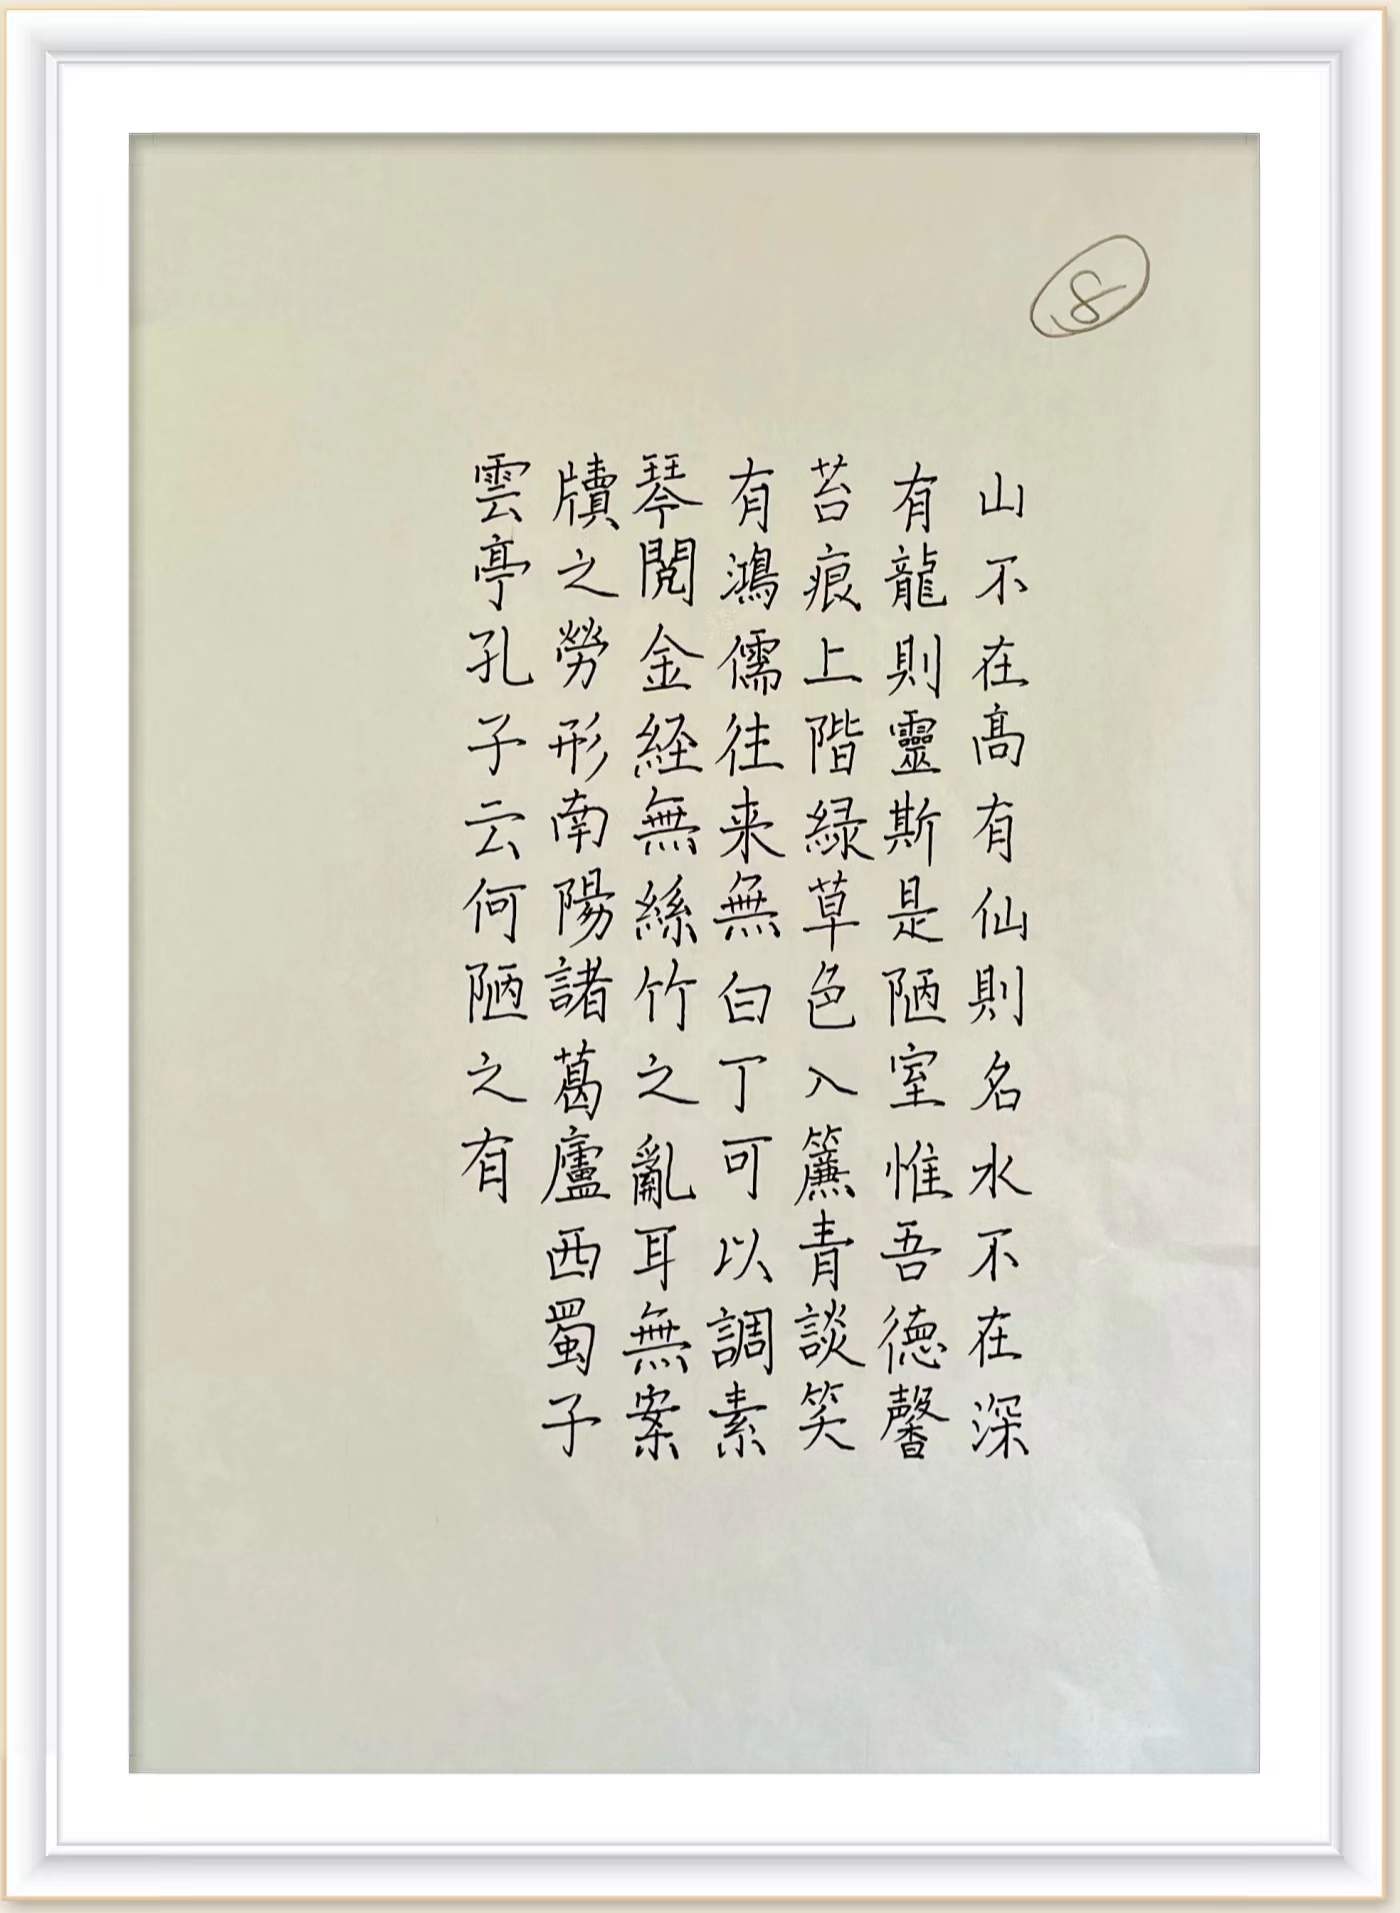 8
山不在髙有仙則名水不在深
有龍則靈斯是陋室惟吾徳馨
苔痕上階緑草色入簾青談笑
有鴻儒往来無白丁可以調素
琴閱金経無絲竹之亂耳無案
牘之勞形南陽諸葛廬西蜀子
雲亭孔子云何陋之有